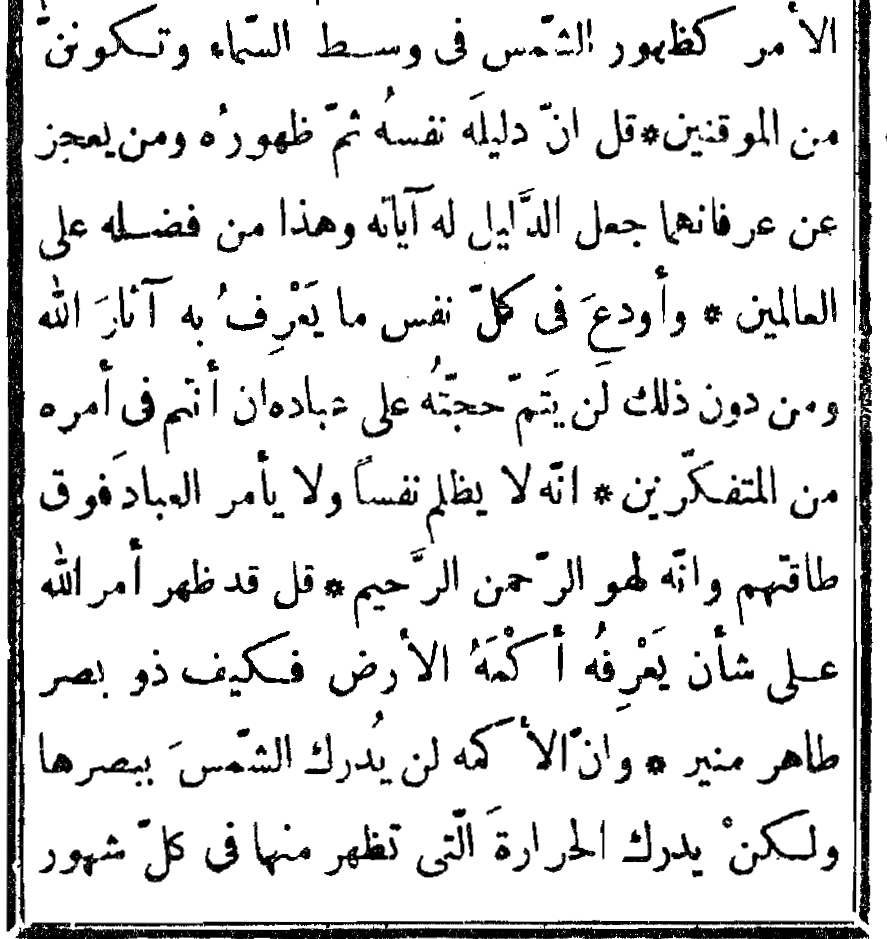 الأمر كظهور الشّمس فى وسط السّماء وتكوننّ
من الموقنين * قل انّ دليلَه نفسهُ ثمّ ظهورُه ومن يعجز
عن عرفانهما جعل الدَّليل له آياته وهذا من فضله على
العالمين * وأودعَ فى كلّ نفس ما يَعْرِفُ به آثارَ الله
ومن دون ذلك لَن يَتمّ حجتّهُ على عباده ان أنتم فى أمره
من المتفكّرين * انّه لا يظلم نفساً ولا يأمر العبادَ فوق
طاقتهم وانّه لهو الرّحمن الرَّحيم * قل قد ظهر أمر الله
على شأن يَعْرِفُه أكْمَهُ الأرض فكيف ذو بصر
طاهر منير * وانّ الأكمه لن يُدرك الشّمسَ ببصرها
ولكنْ يدرك الحرارةَ الّتى تظهر منها فى كلّ شهور